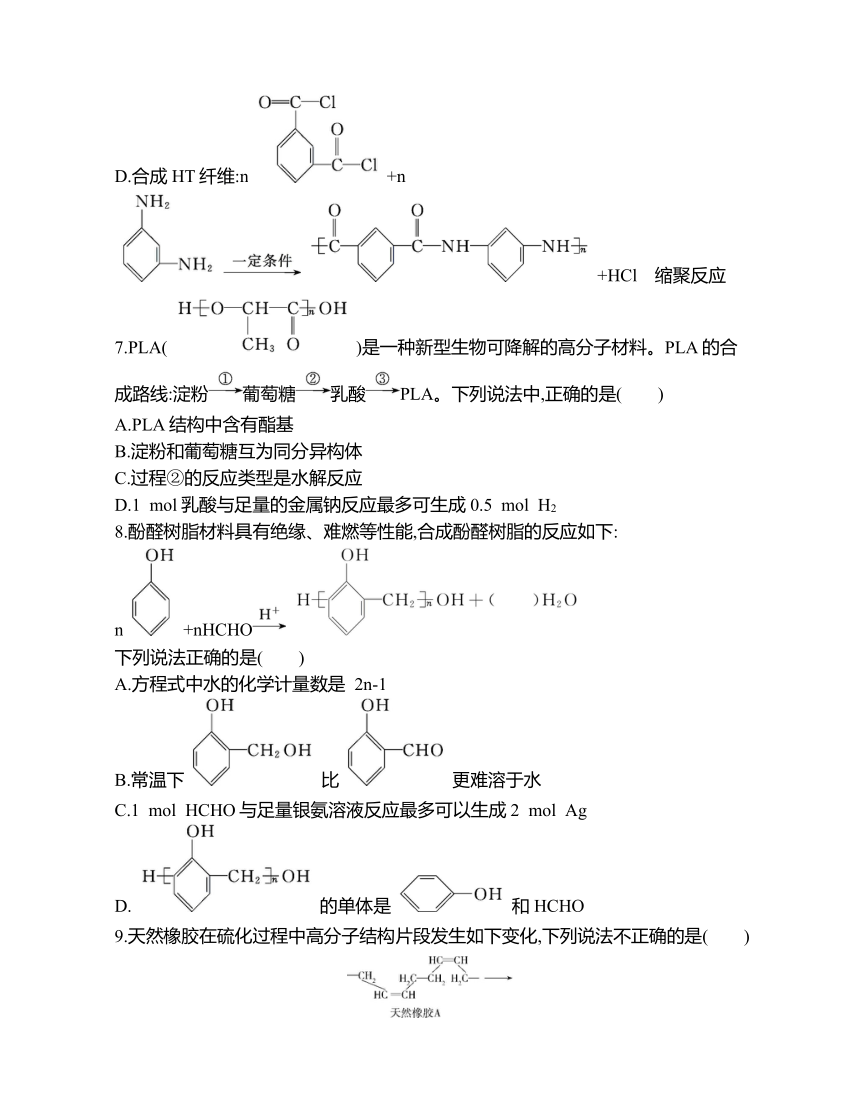 O=C—Cl
O
C—Cl
D.合成HT纤维:n +n
NH₂
—NH₂ 一定条件
O O
[C C—NH NH]n +HCl 缩聚反应
H[O—CH—C]nOH
CH₃ O
7.PLA( )是一种新型生物可降解的高分子材料。PLA的合
成路线:淀粉①→葡萄糖②→乳酸③→PLA。下列说法中,正确的是( )
A.PLA结构中含有酯基
B.淀粉和葡萄糖互为同分异构体
C.过程②的反应类型是水解反应
D.1 mol乳酸与足量的金属钠反应最多可生成0.5 mol H₂
8.酚醛树脂材料具有绝缘、难燃等性能,合成酚醛树脂的反应如下:
OH OH
n +nHCHO H⁺→ H[ —CH₂]nOH+( )H₂O
下列说法正确的是( )
A.方程式中水的化学计量数是 2n-1
OH OH
B.常温下 —CH₂OH 比 —CHO 更难溶于水
C.1 mol HCHO与足量银氨溶液反应最多可以生成2 mol Ag
OH
D. H[ —CH₂]nOH 的单体是 —OH 和HCHO
9.天然橡胶在硫化过程中高分子结构片段发生如下变化,下列说法不正确的是( )
HC=CH
—CH₂ H₂C—CH₂ H₂C— →
HC=CH
天然橡胶A